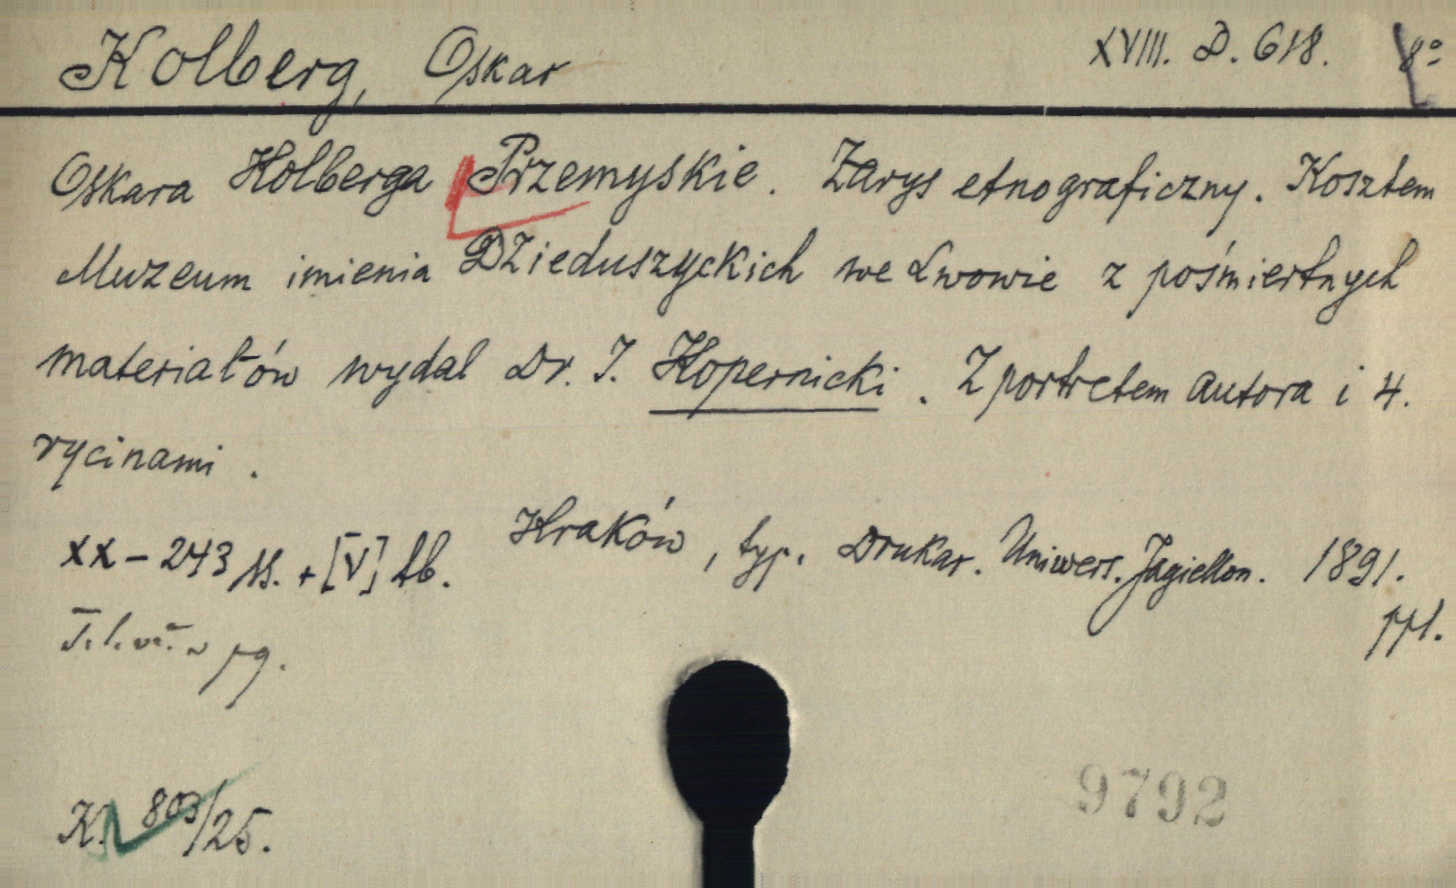 Kolberg, Oskar XVIII. D. 618. 8°
Oskara Kolberga Przemyskie. Zarys etnograficzny. Kosztem
Muzeum imienia Dzieduszyckich we Lwowie z pośmiertnych
materiałów wydał Dr. I. Kopernicki. Z portretem autora i 4.
rycinami.
XX – 243 ss. + [V] tb. Kraków, typ. Drukar. Uniwers. Jagiellon. 1891.
ppł.
pg.
K. 803/25.
9792